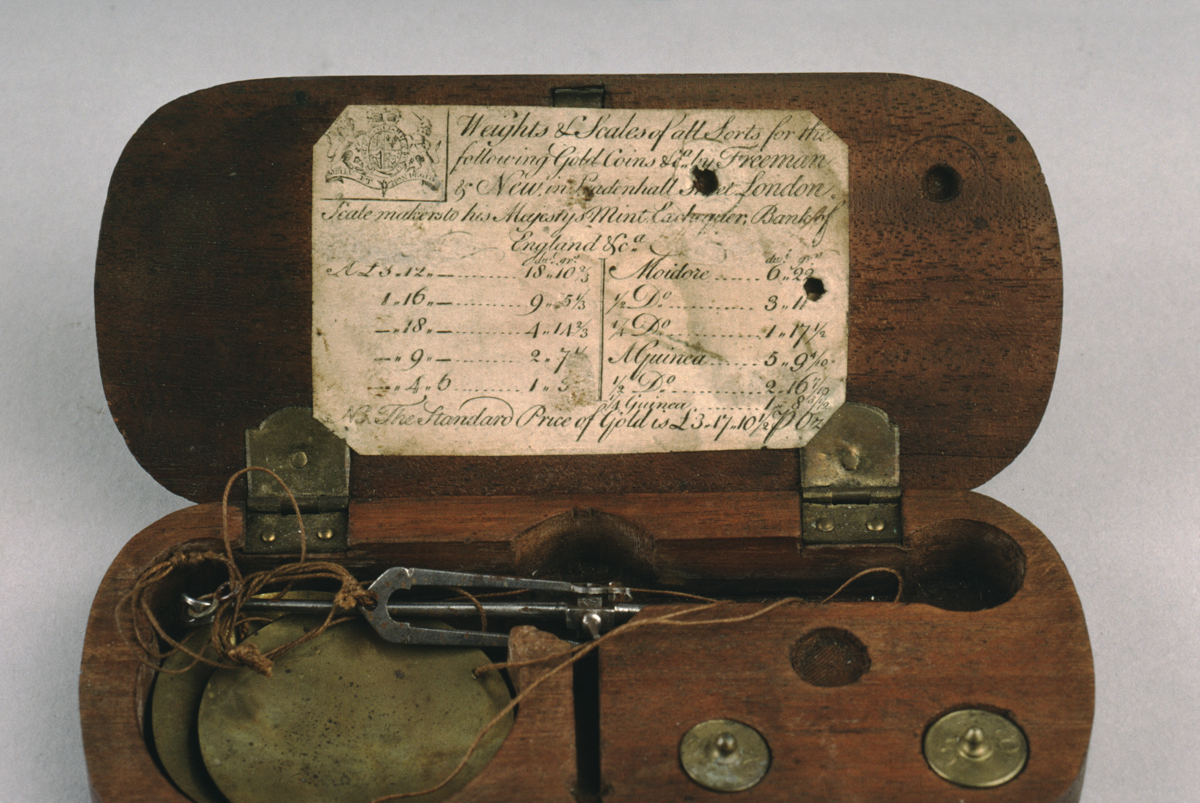 Weights & Scales of all Sorts for the
following Gold Coins &c.a by Freeman
& New, in Leadenhall Street London.
Scale makers to his Majestys Mint, Exchequer, Bank of
England &c.a
dwt. grs.
A £3 〃 12 〃 — 18 〃 10 2/3
1 〃 16 〃 — 9 〃 5 1/3
— 〃 18 〃 — 4 〃 14 2/3
— 〃 9 〃 — 2 〃 7
— 〃 4 〃 6 1 〃 3
dwt. grs.
Moidore 6 〃 22
1/2 Do. 3 〃 11
1/4 Do. 1 〃 17 1/2
A Guinea 5 〃 9
1/2 Do. 2 〃 16
1/4 Guinea 1 〃 8
NB. The Standard Price of Gold is £3 〃 17 〃 10 1/2 P Oz